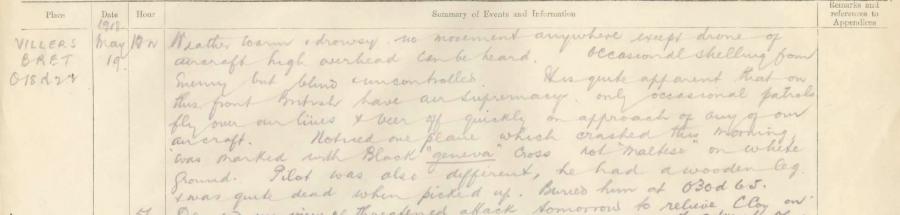 Place Date Hour Summary of Events and Information Remarks and references to Appendices
1918
VILLERS May 12 N Weather warm & drowsy. no movement anywhere except drone of
BRET 19 aircraft high overhead can be heard. Occasional shelling from
enemy but blind & uncontrolled. It is quite apparent that on
this front British have air supremacy. only occasional patrols
fly over our lines & veer off quickly on approach of any of our
aircraft. Noticed one plane which crashed this morning
was marked with Black "geneva" Cross not "maltese" on white
ground. Pilot was also different, he had a wooden leg
& was quite dead when picked up. Buried him at O30d 6.5.
threatened attack tomorrow to relieve C Coy on